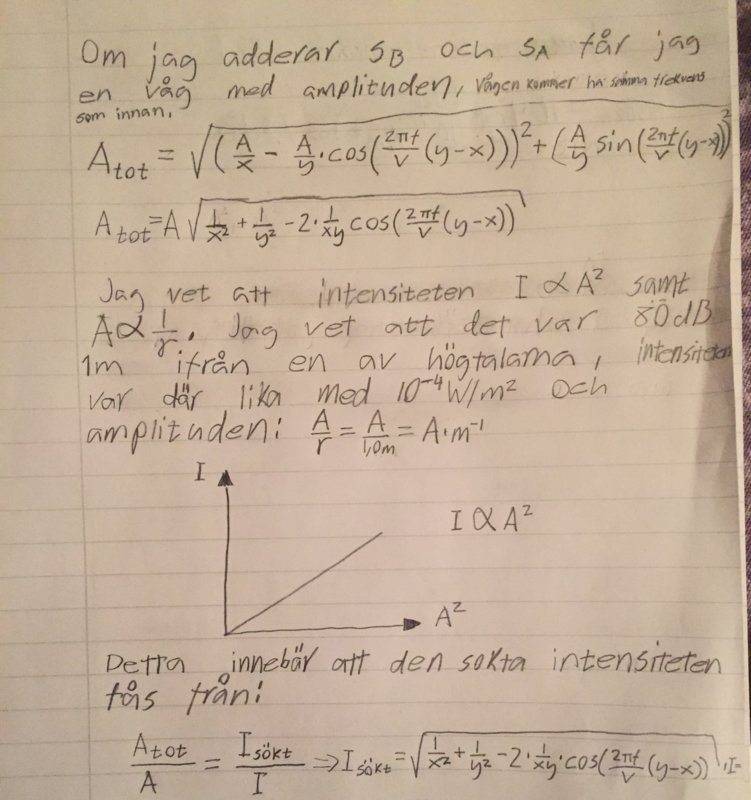 Om jag adderar S_B och S_A får jag
en våg med amplituden, vågen kommer ha samma frekvens
som innan.
A_tot = √((A/x − A/y · cos(2πf/v (y−x)))² + (A/y sin(2πf/v (y−x)))²
A_tot = A √(1/x² + 1/y² − 2 · 1/xy cos(2πf/v (y−x)))
Jag vet att intensiteten I ∝ A² samt
A ∝ 1/r. Jag vet att det var 80 dB
1m ifrån en av högtalarna, intensiteten
var där lika med 10⁻⁴ W/m² och
amplituden: A/r = A/1,0m = A·m⁻¹
I
I ∝ A²
A²
Detta innebär att den sökta intensiteten
fås från:
A_tot/A = I_sökt/I ⇒ I_sökt = √(1/x² + 1/y² − 2 · 1/xy · cos(2πf/v (y−x))) · I =